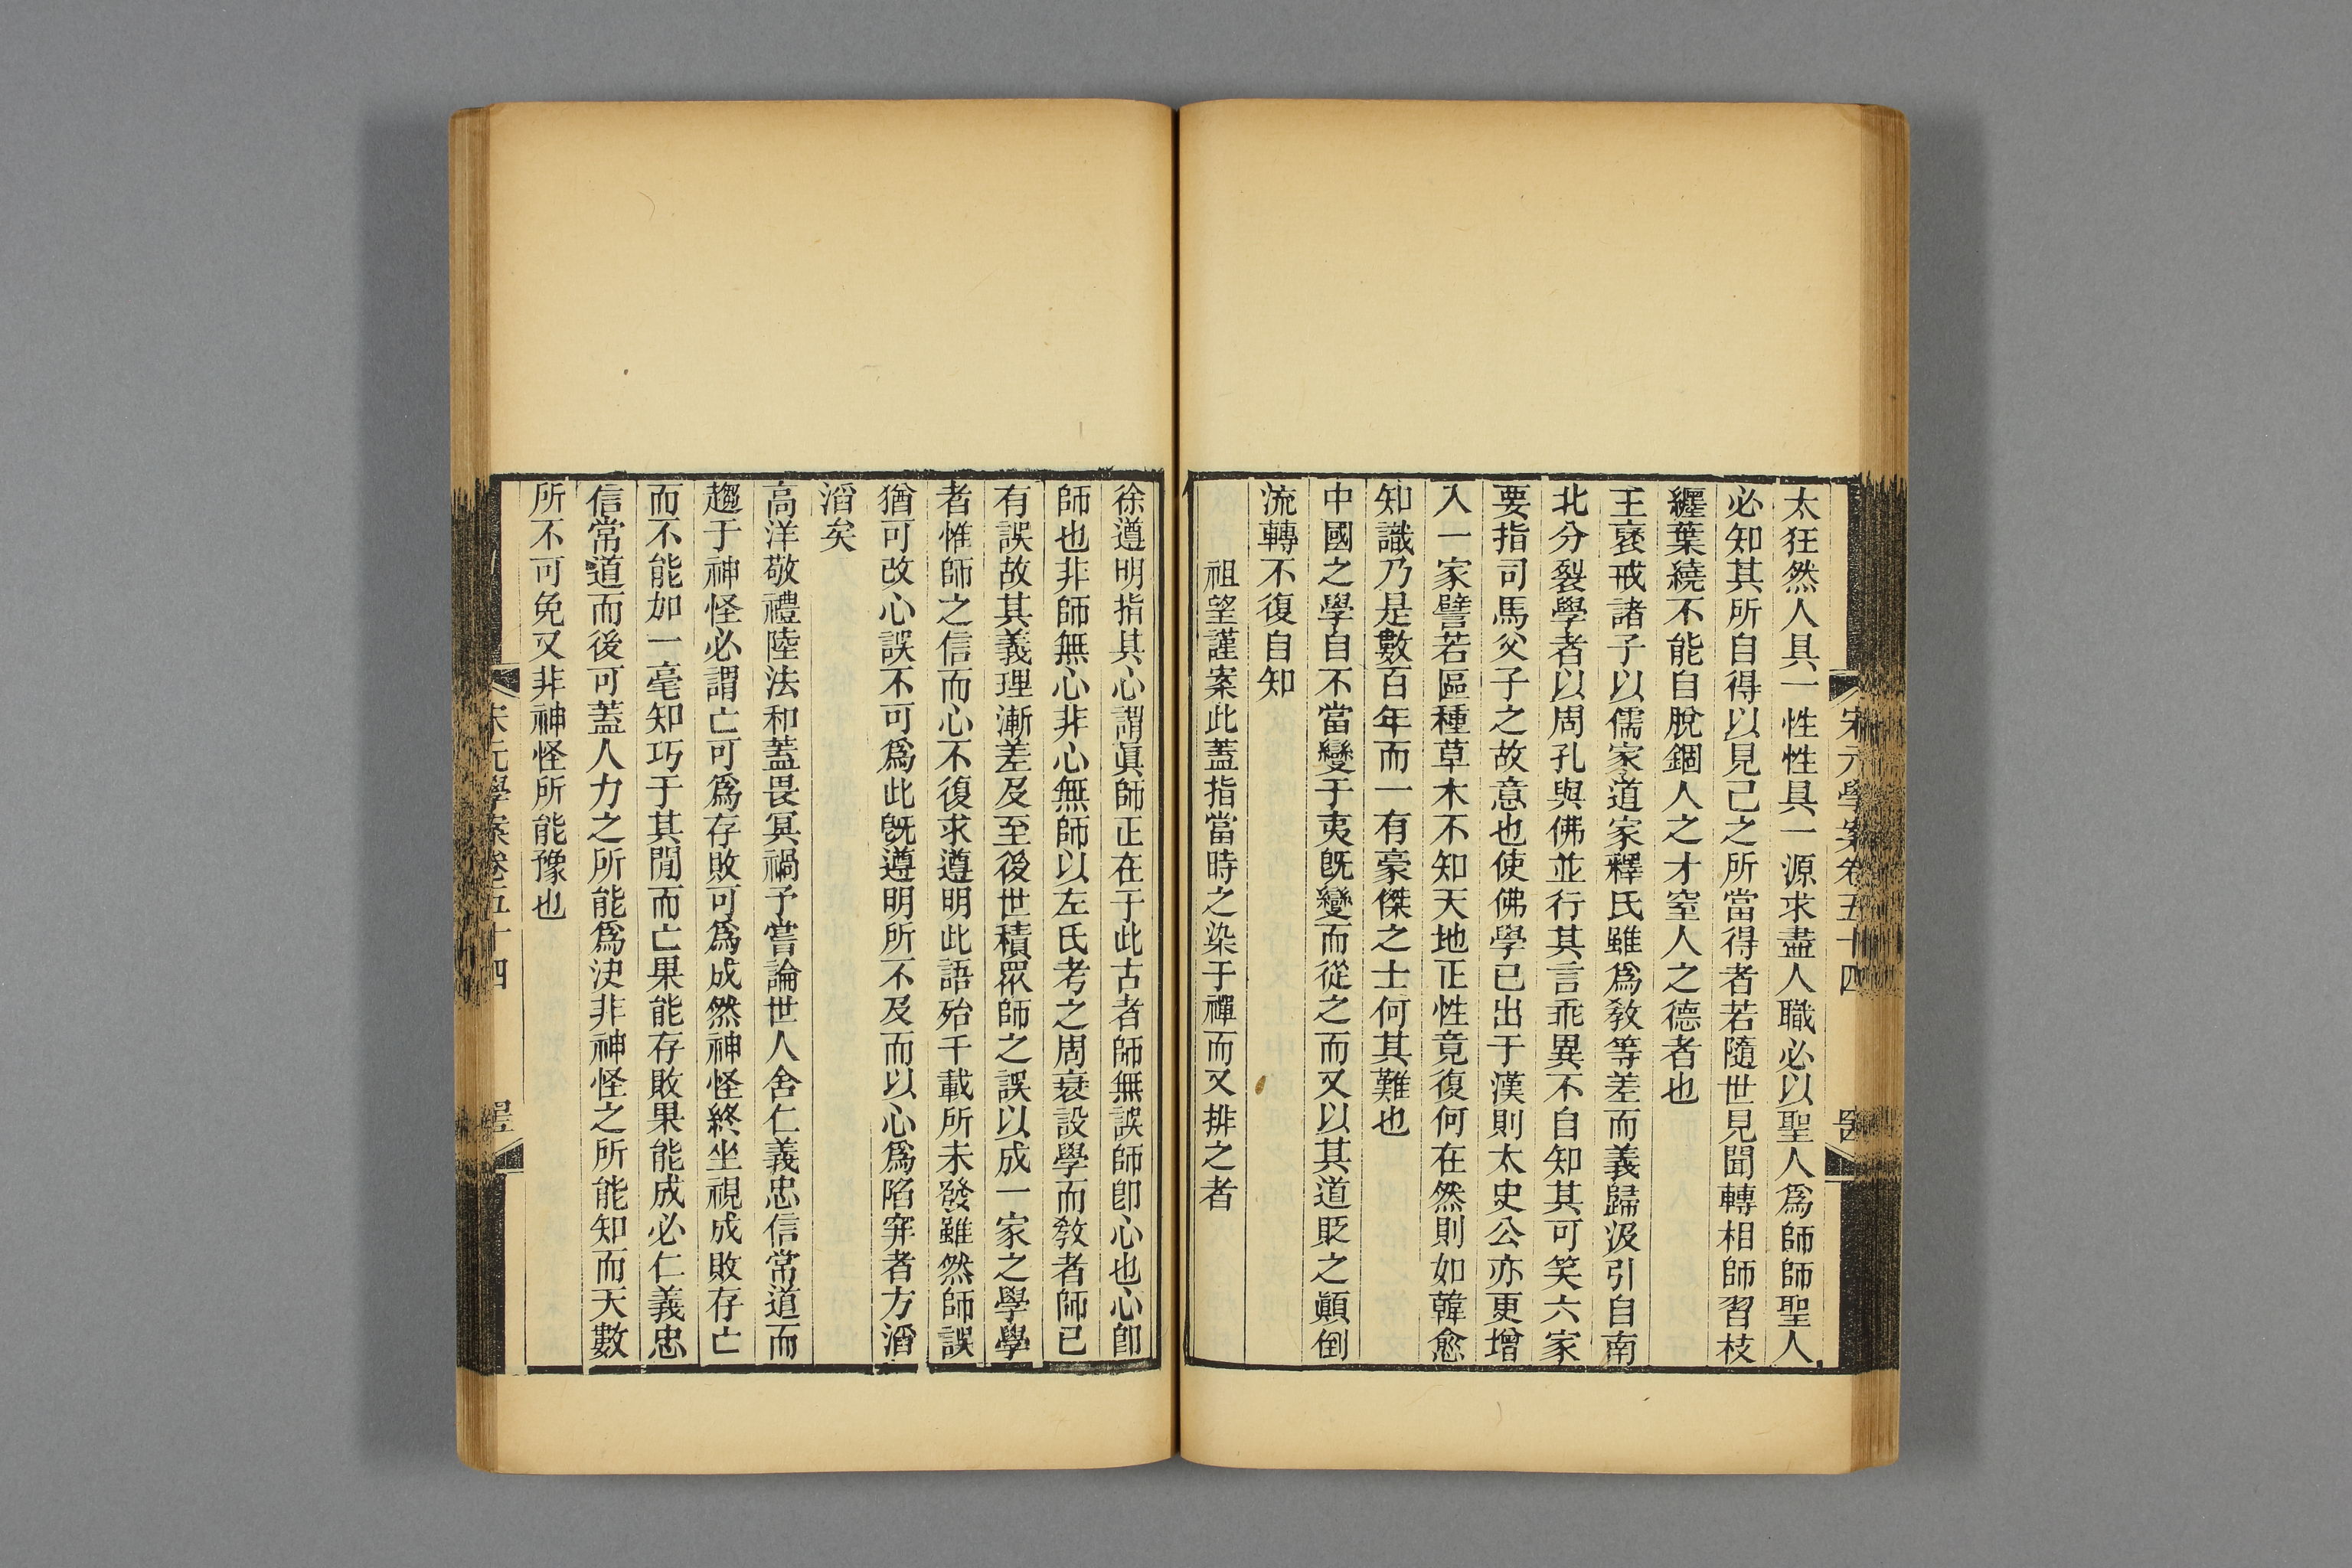 宋元學案卷五十四
太狂然人具一性性具一源求盡人職必以聖人爲師師聖人
必知其所自得以見己之所當得者若隨世見聞轉相師習枝
纏葉繞不能自脫錮人之才窒人之德者也
王襃戒諸子以儒家道家釋氏雖爲教等差而義歸汲引自南
北分裂學者以周孔與佛並行其言乖異不自知其可笑六家
要指司馬父子之故意也使佛學已出于漢則太史公亦更增
入一家譬若區種草木不知天地正性竟復何在然則如韓愈
知識乃是數百年而一有豪傑之士何其難也
中國之學自不當變于夷旣變而從之而又以其道貶之顚倒
流轉不復自知
祖望謹案此蓋指當時之染于禪而又排之者
徐遵明指其心謂眞師正在于此古者師無誤師卽心也心卽
師也非師無心非心無師以左氏考之周衰設學而教者師已
有誤故其義理漸差及至後世積眾師之誤以成一家之學學
者惟師之信而心不復求遵明此語殆千載所未發雖然師誤
猶可改心誤不可爲此旣遵明所不及而以心爲陷穽者方滔
滔矣
高洋敬禮陸法和蓋畏冥禍予嘗論世人舍仁義忠信常道而
趨于神怪必謂亡可爲存敗可爲成然神怪終坐視成敗存亡
而不能如一毫知巧于其閒而亡果能存敗果能成必仁義忠
信常道而後可蓋人力之所能爲決非神怪之所能知而天數
所不可免又非神怪所能豫也
宋元學案卷五十四